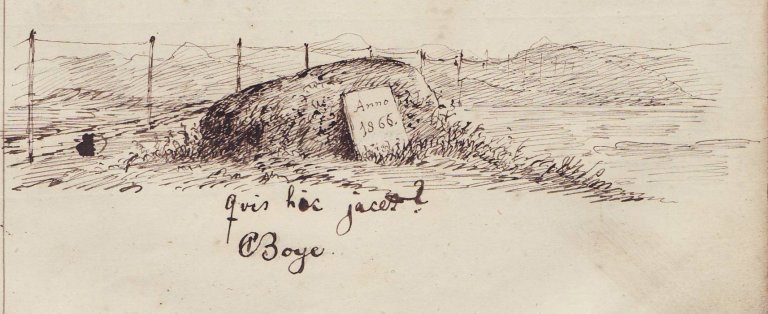 Anno
1866.
Quis hic jacet?
CBoye.